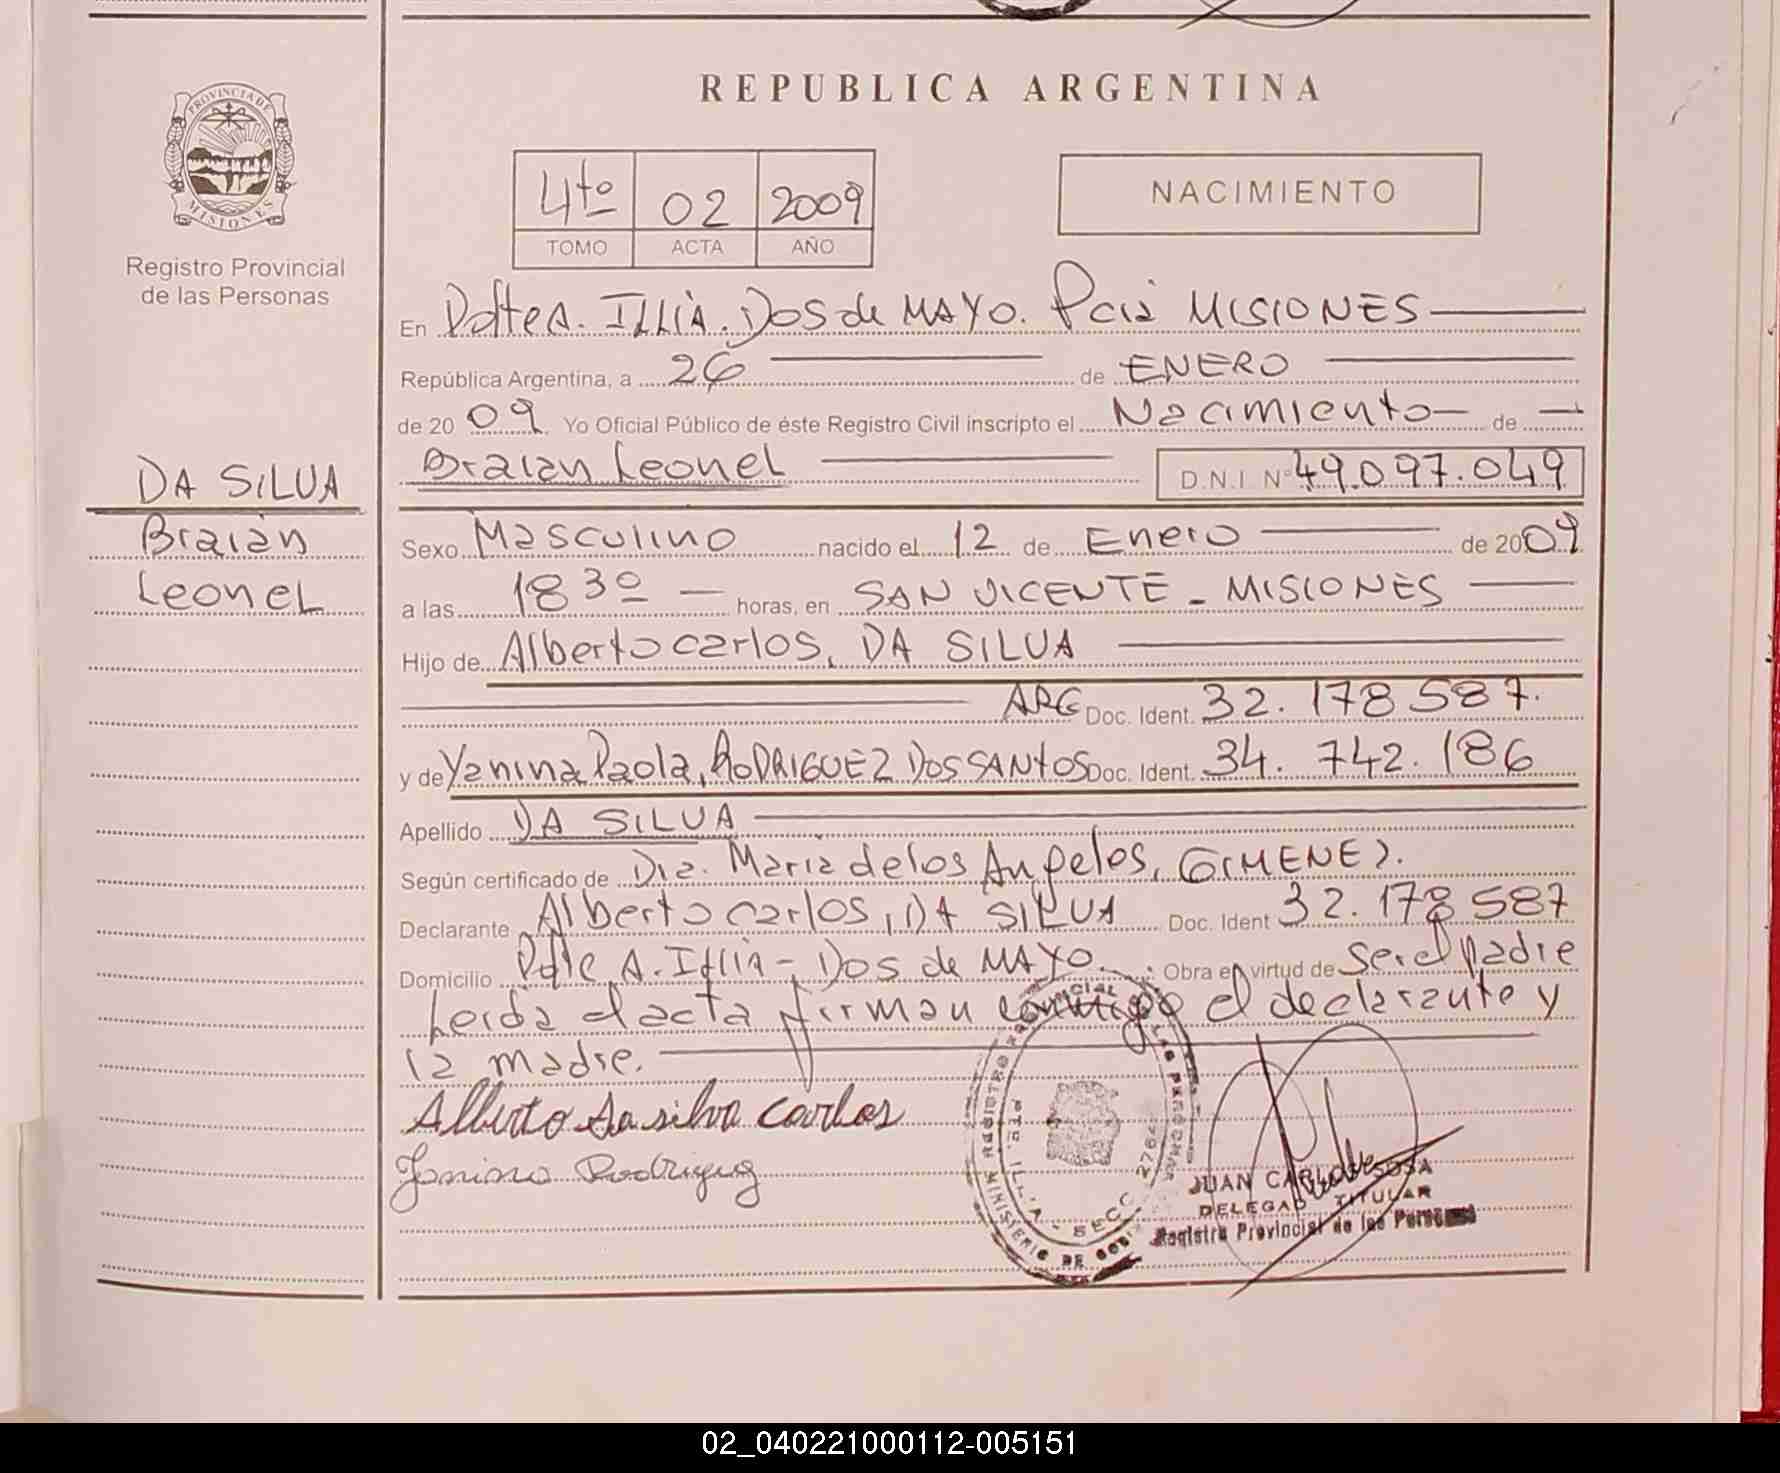 REPUBLICA ARGENTINA
PROVINCIA DE MISIONES
Registro Provincial
de las Personas
4to 02 2009
TOMO ACTA AÑO
NACIMIENTO
En Pdte A. ILLIA. Dos de MAYO. Pcia MISIONES
República Argentina, a 26 de ENERO
de 2009 Yo Oficial Público de éste Registro Civil inscripto el Nacimiento de
Braian Leonel D.N.I. Nº 49.097.049
DA SILVA
Braian
Leonel
Sexo Masculino nacido el 12 de Enero de 2009
a las 18 30 horas, en SAN VICENTE - MISIONES
Hijo de Alberto Carlos, DA SILVA
ARG Doc. Ident. 32.178587.
y de Yanina Paola, RODRIGUEZ DOS SANTOS Doc. Ident. 34.742.186
Apellido DA SILVA
Según certificado de Dra. Maria de los Angeles, GIMENEZ.
Declarante Alberto Carlos, DA SILVA Doc. Ident 32.178587
Domicilio Pdte A. Illia - Dos de MAYO. Obra en virtud de ser el padre
Leida el acta firman conmigo el declarante y
la madre.
Alberto Da silva Carlos
Yanina Rodriguez
REGISTRO PROVINCIAL LAS PERSONAS
MINISTERIO DE
SECC. 2764
JUAN CARLOS SOSA
DELEGADO TITULAR
Registro Provincial de las Personas
02_040221000112-005151